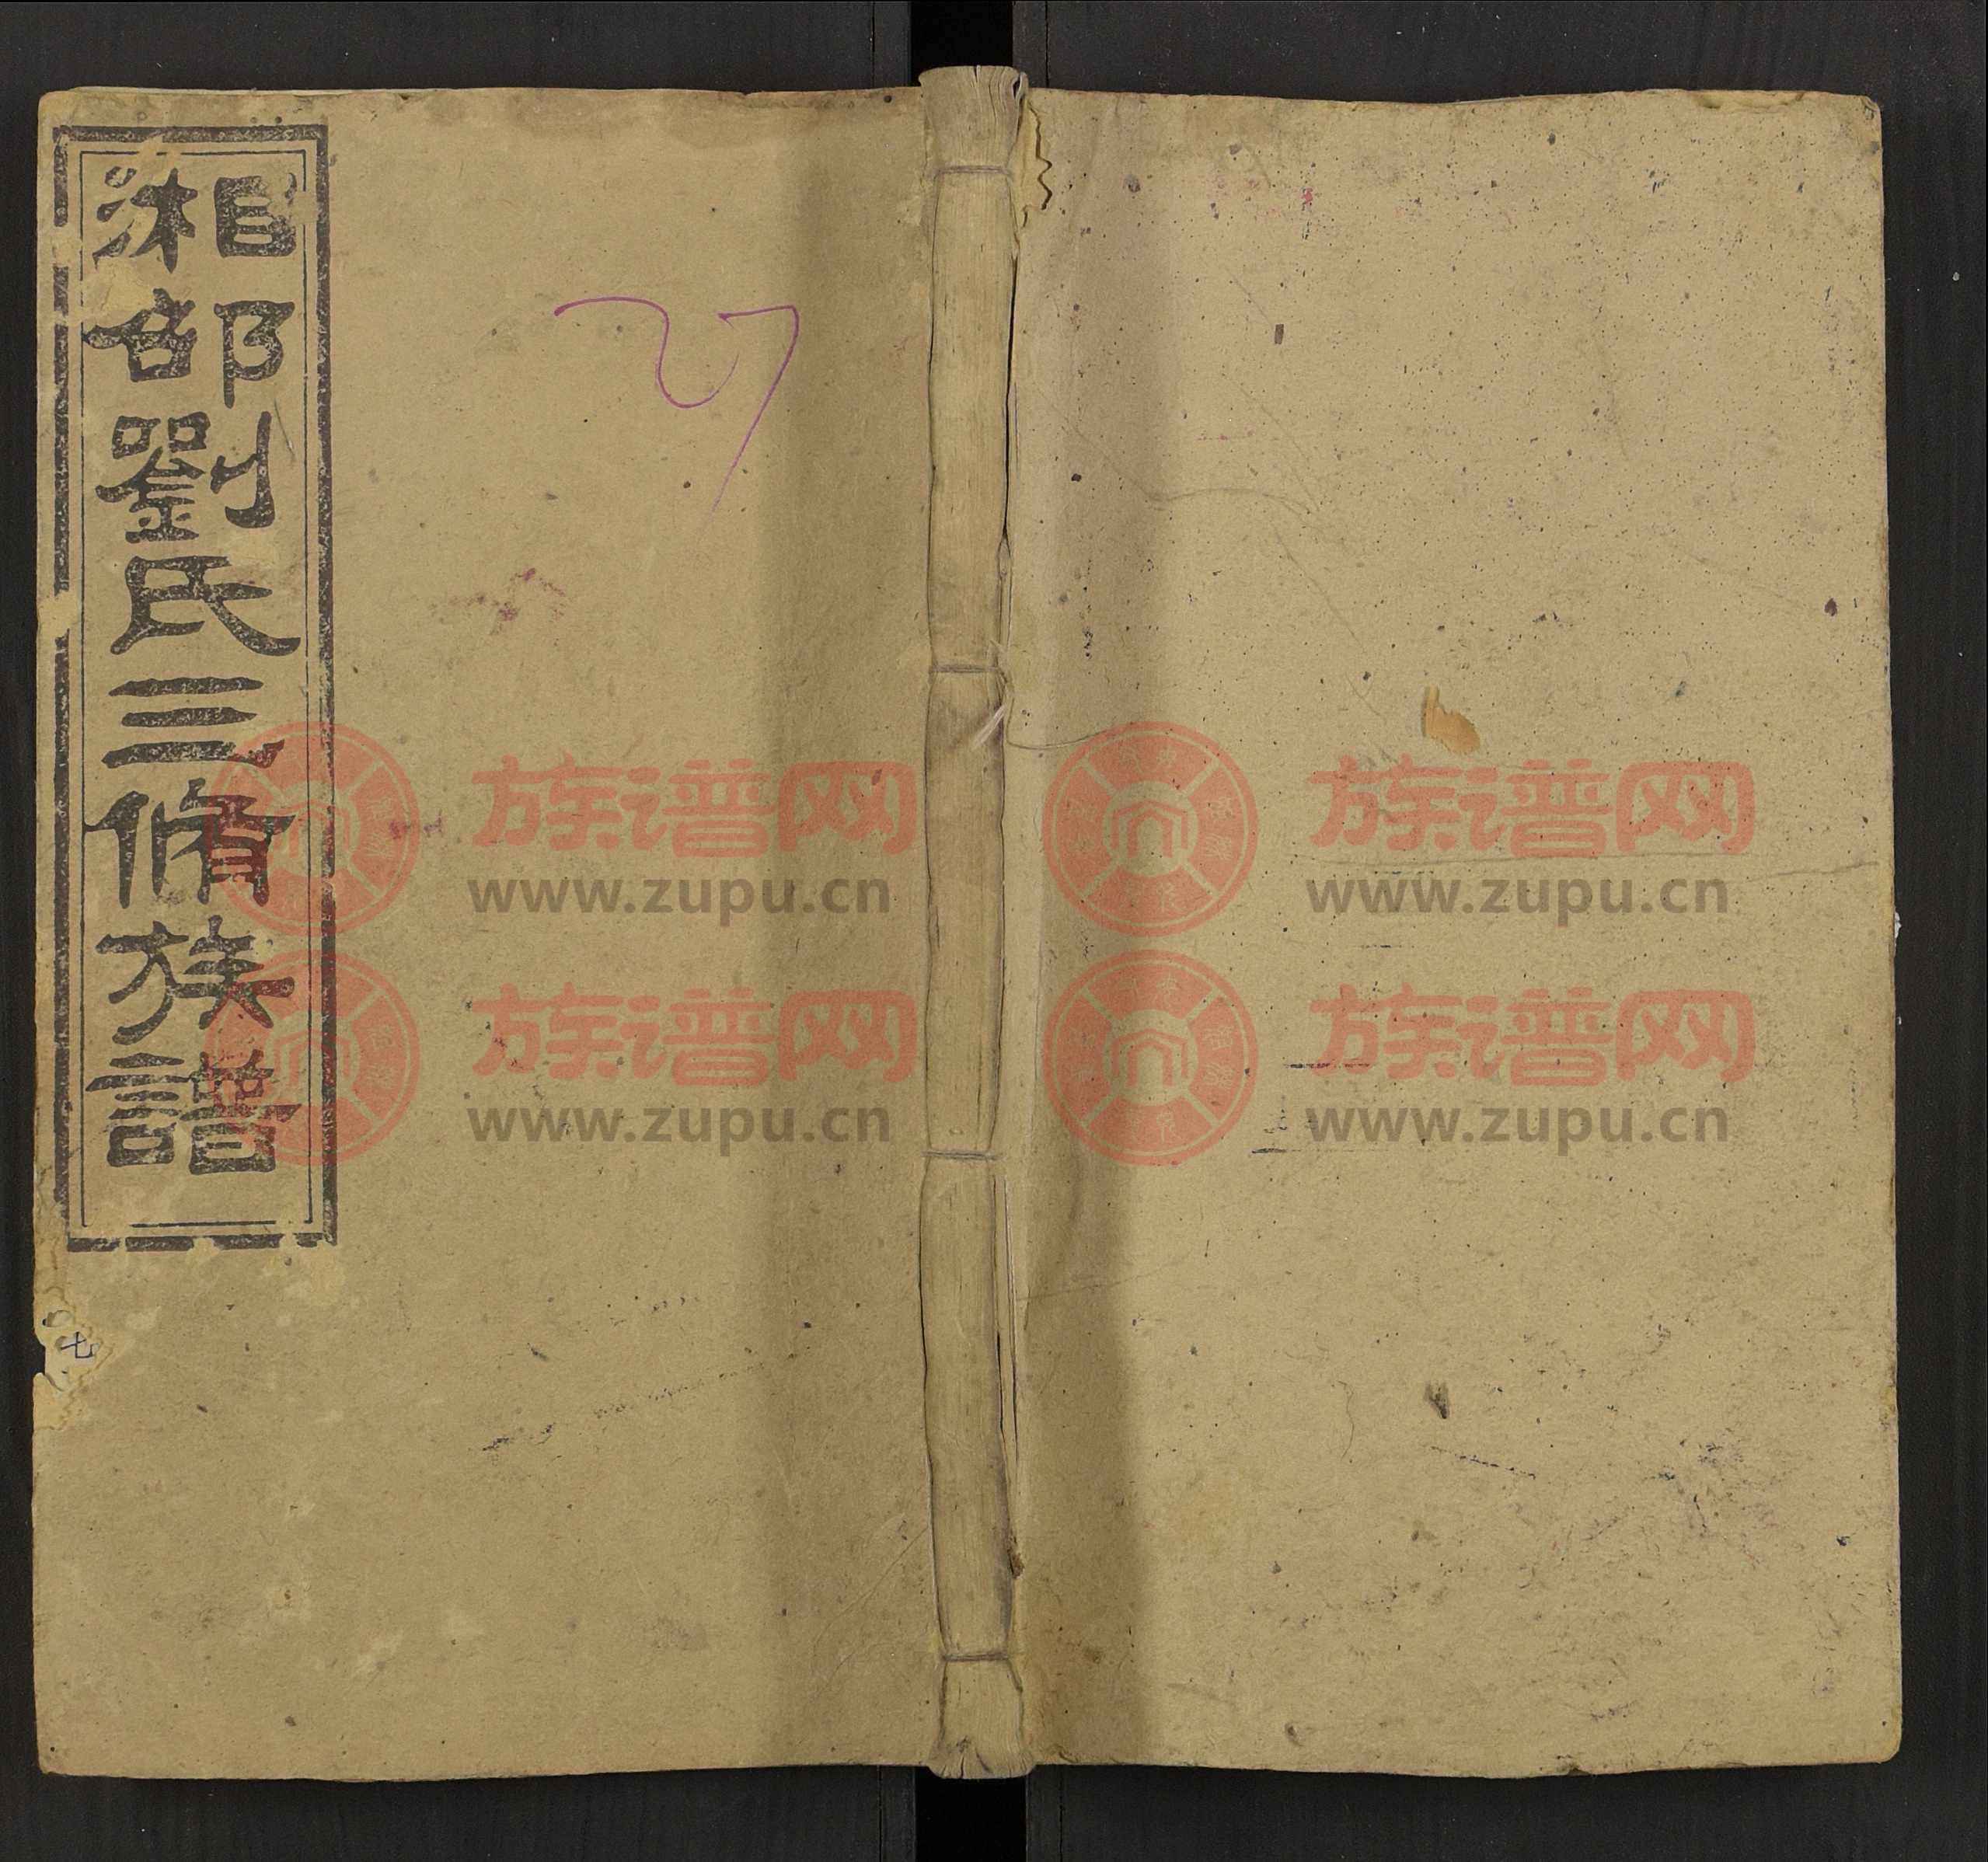 湘邵劉氏三脩族譜
27
七
族谱网
www.zupu.cn
族谱网
www.zupu.cn
族谱网
www.zupu.cn
族谱网
www.zupu.cn